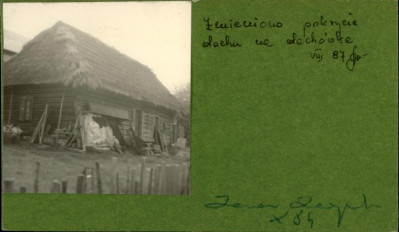 Zmieniono pokrycie
dachu na dachówkę
VII 87
X 84